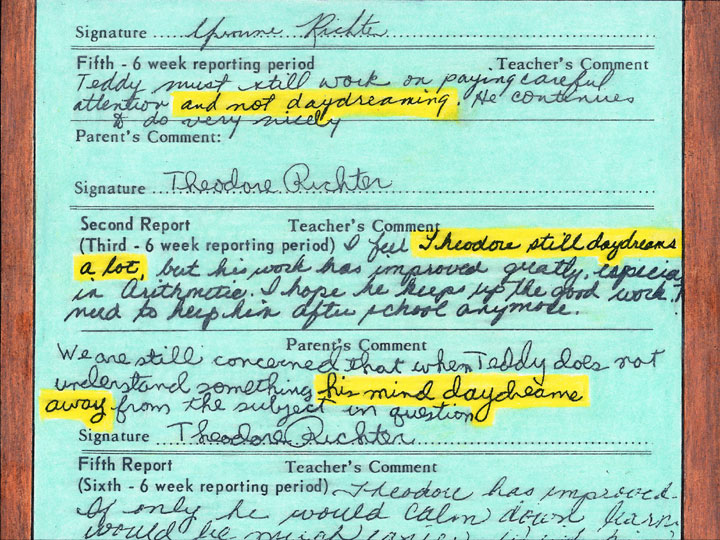 Signature Yvonne Richter
Fifth - 6 week reporting period) Teacher's Comment
Teddy must still work on paying careful
attention and not daydreaming. He continues
to do very nicely
Parent's Comment:
Signature Theodore Richter
Second Report Teacher's Comment
(Third - 6 week reporting period) I feel Theodore still daydreams
a lot, but his work has improved greatly, especia
in Arithmetic. I hope he keeps up the good work.
need to keep him after school anymore.
Parent's Comment
We are still concerned that when Teddy does not
understand something his mind daydreams
away from the subject in question
Signature Theodore Richter
Fifth Report Teacher's Comment
(Sixth - 6 week reporting period) Theodore has improved.
If only he would calm down learn
would be much easier